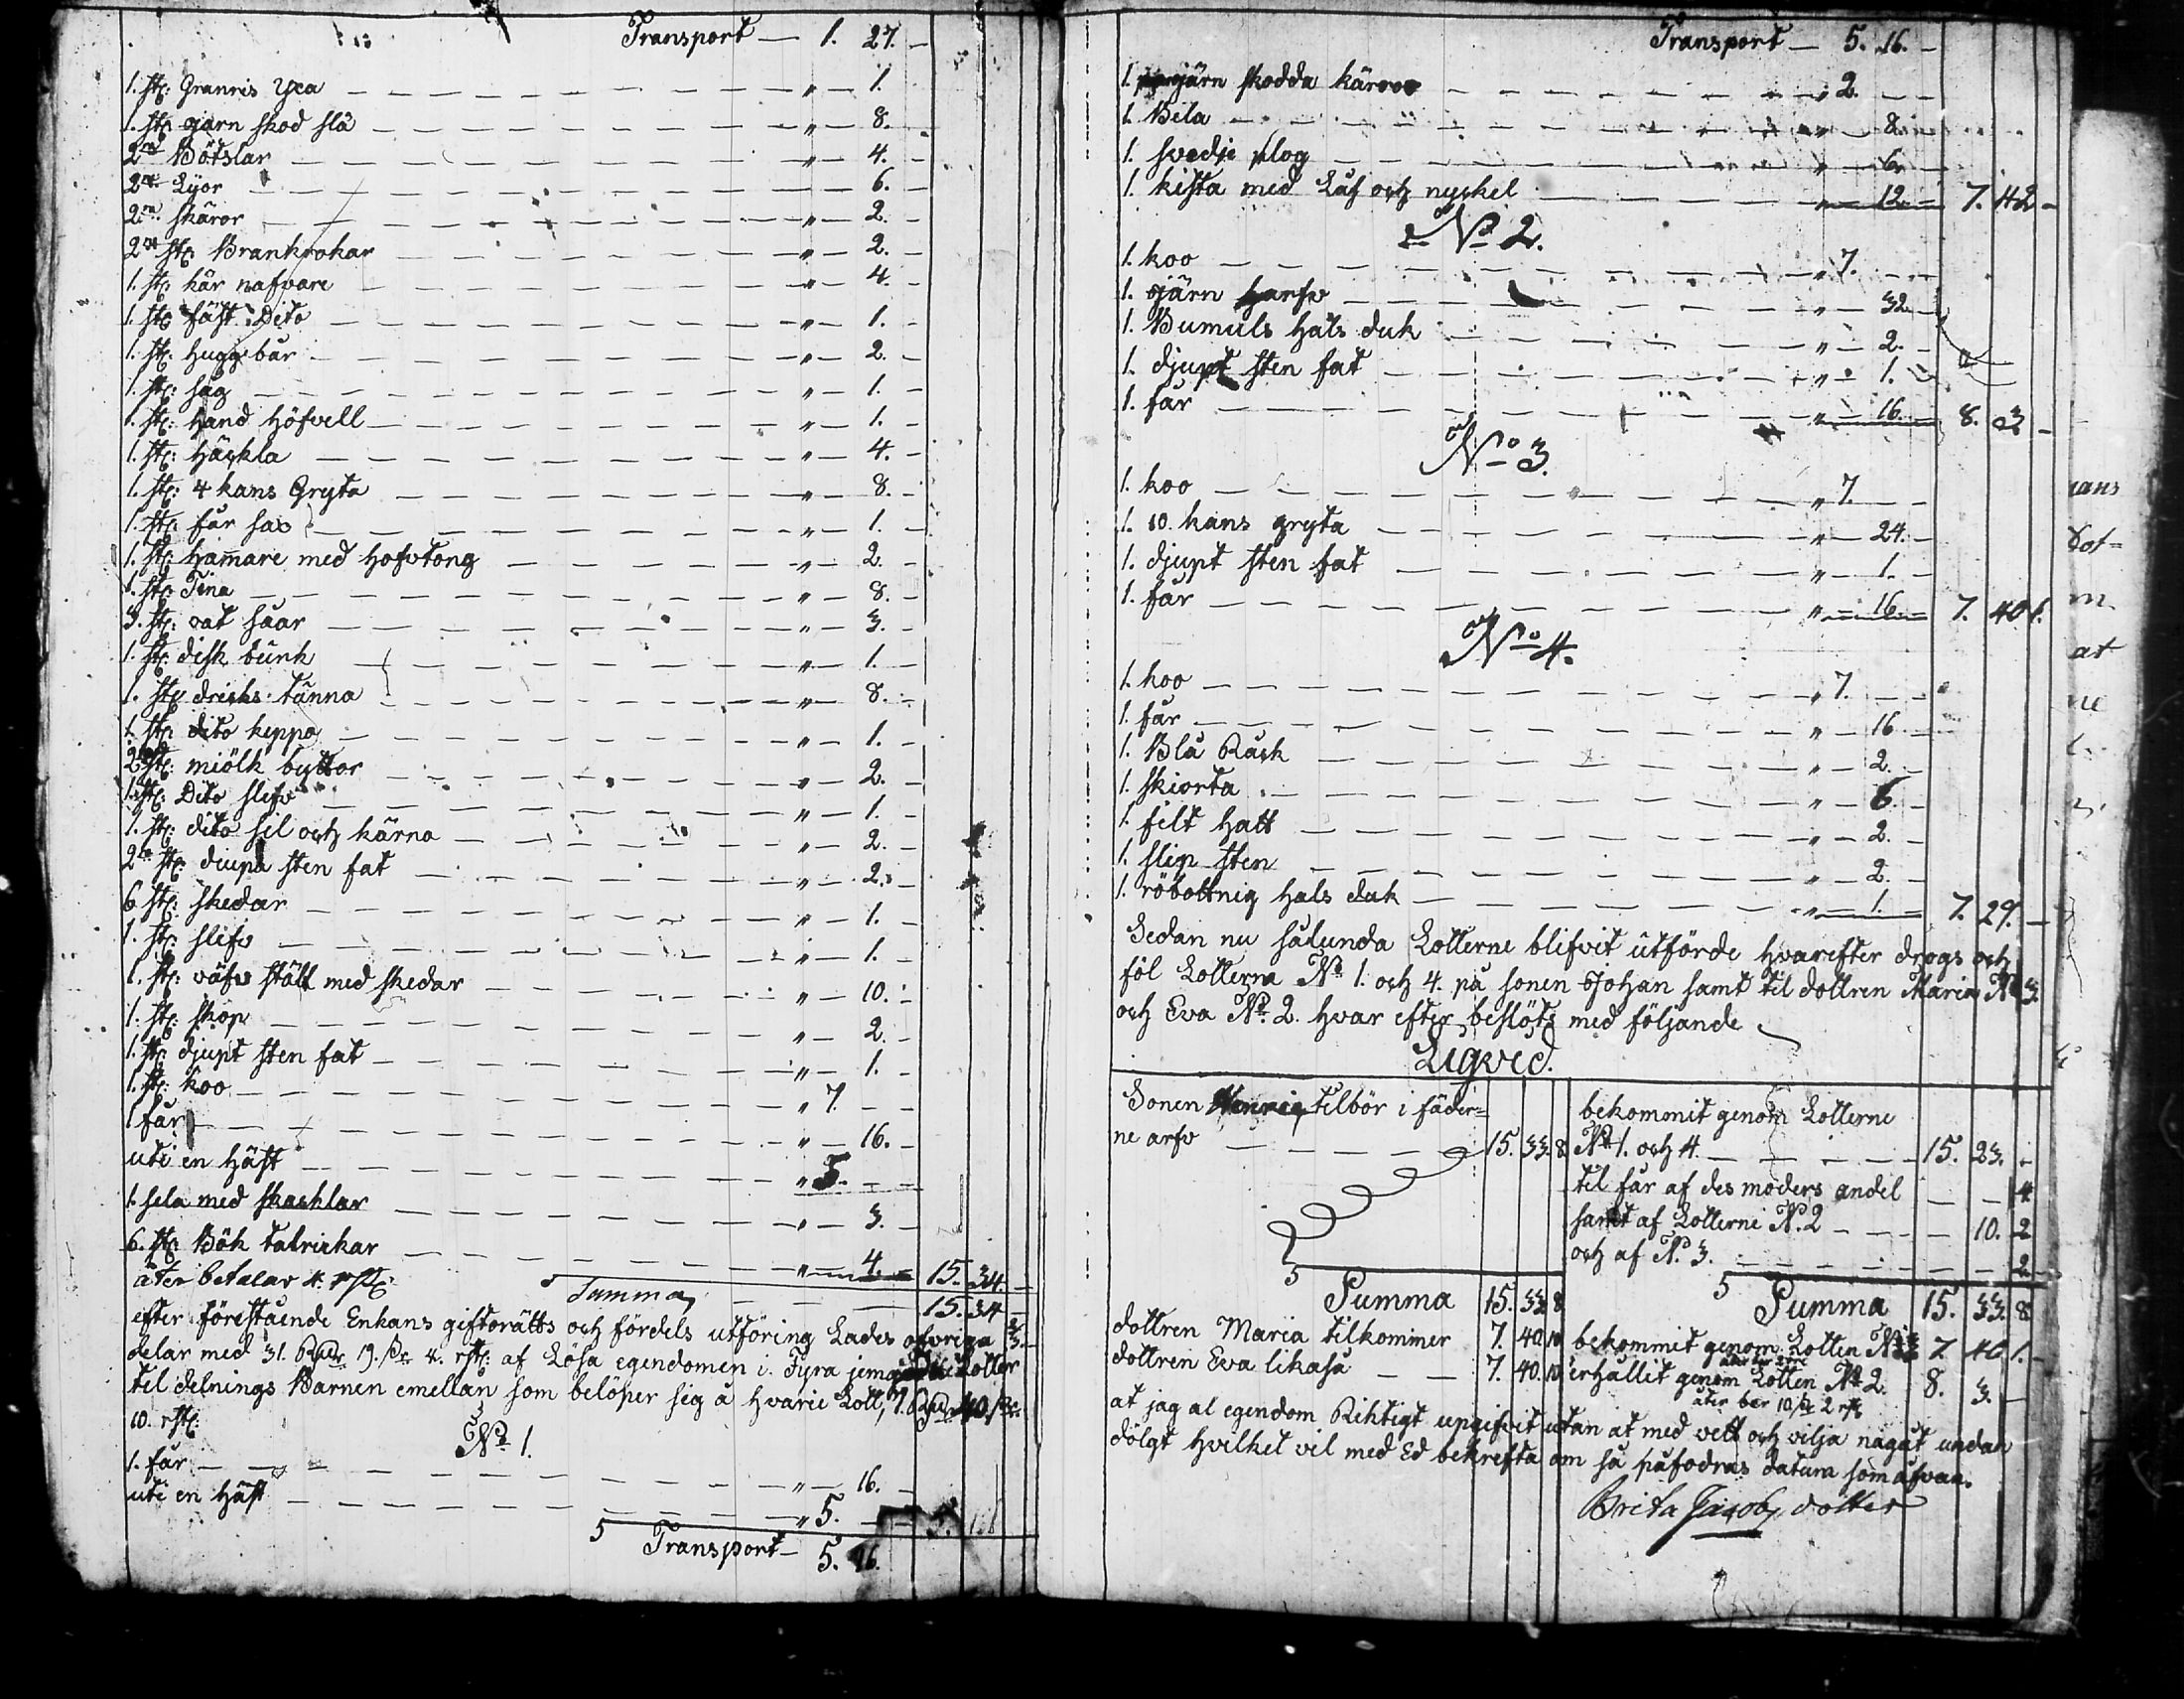 Transport — 1. 27. —
1. st: Granris Yxa — „ — 1.
1. st: gjärn skod slä — „ — 8. —
2ne Bötslar — „ — 4. —
2ne Lyor — „ — 6. —
2ne skäror — „ — 2. —
2ne st: Brankrokar — „ — 2. —
1. st: kär nafvare — „ — 4. —
1. st: fäst Dito — „ — 1. —
1. st: huggebår — „ — 2. —
1. st: såg — „ — 1. —
1. st: hand höfvell — „ — 1. —
1. st: häckla — „ — 4. —
1. st: 4 kans Gryta — „ — 8. —
1. st: får sax — „ — 1. —
1. st: ham̅are med hofvtong — „ — 2. —
1. st: Tina — „ — 8. —
3. st: vat såar — „ — 3. —
1. st: disk bunk — „ — 1. —
1. st: dricks tunna — „ — 8. —
1. st: dito keppa — „ — 1. —
2ne st: miölk byttor — „ — 2. —
1. st: Dito slefv — „ — 1. —
1. st: dito sil och kärna — „ — 2. —
2ne st: diupa sten fat — „ — 2. —
6 st: skedar — „ — 1. —
1. st: slefv — „ — 1. —
1. st: väfv ställ med skedar — „ — 10. —
1. st: skop — „ — 2. —
1. st: djupt sten fat — „ — 1. —
1. st: koo — „ 7. — —
1 får — „ — 16. —
uti en häst — „ 5. — —
1. sela med skacklar — „ — 3. —
6. st: Bök talrickar — „ — 4. — 15. 34. —
åter betalar 4. rst:
Summa — 15. 34 —
efter förestående Enkans giftorätts och fördels utföring Lades öfvriga
delar med 31. Rdr 19. sk 4. rst: af Lösa egendomen i Fyra jemngoda Lotter
til delnings Barnen emellan som belöper sig å hvarie Lott, 7. Rdr 40. sk
10. rst:
No 1.
1. får — „ — 16. —
uti en häst — „ 5. — — 5. 16
Transport — 5. 16.
Transport — 5. 16. —
1. järn skodda kärror — „ 2. — —
1. Bila — „ — 8. —
1. svedje plog — „ — 6. —
1. kista med Lås och nyckel — „ — 12. — 7. 42 —
No 2.
1. koo — „ 7. — —
1. gjärn harfv — „ — 32. —
1. Bumuls hals duk — „ — 2. —
1. djupt sten fat — „ — 1. —
1. får — „ — 16. — 8. 3 —
No 3.
1. koo — „ 7. — —
1. 10. kans gryta — „ — 24. —
1. djupt sten fat — „ — 1. —
1. får — „ — 16. — 7. 40 1.
No 4.
1. koo — „ 7. — —
1. får — „ — 16 —
1. Blå Råck — „ — 2. —
1. skiorta — „ — 6. —
1. filt hatt — „ — 2. —
1. slip sten — „ — 2. —
1. röbottnig hals duk — „ — 1. — 7. 29. —
Sedan nu sålunda Lotterne blifvit utförde hvarefter drogs och
föl Lotterna No 1. och 4. på sonen Johan samt til dottren Maria No 3.
och Eva No 2. hvar efter beslöts med följande
Liqvid.
Sonen Henric tilbör i fäder=
ne arfv — 15. 33. 8
Summa 15. 33 8
dottren Maria tilkommer 7. 40. 10
dottren Eva likaså — 7. 40. 10
bekommit genom Lotterne
No 1. och 4. — 15. 23. —
til får af des moders andel — — 4
samt af Lotterne N. 2 — 10. 2
och af N. 3. — — 2
Summa 15. 33. 8
bekommit genom Lotten No 3 7 40 1. —
erhållit genom Lotten No 2. 8. 3. —
åter bär 10 sk 2 rst
at jag al egendom Riktigt upgifvit utan at med vett och vilja någåt undan
dölgt hvilket vil med Ed bekrefta om så påfodras datum som åfvan.
Brita Jacobs dotter